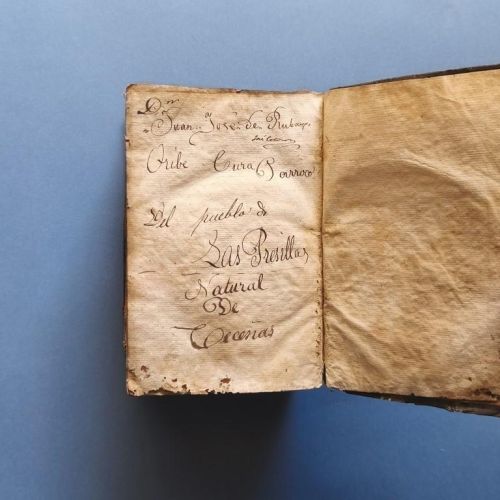 Dn
Juan José de Rubayo
Oribe Cura Párroco
Del pueblo de
Las Presillas
Natural
De
Ceceñas